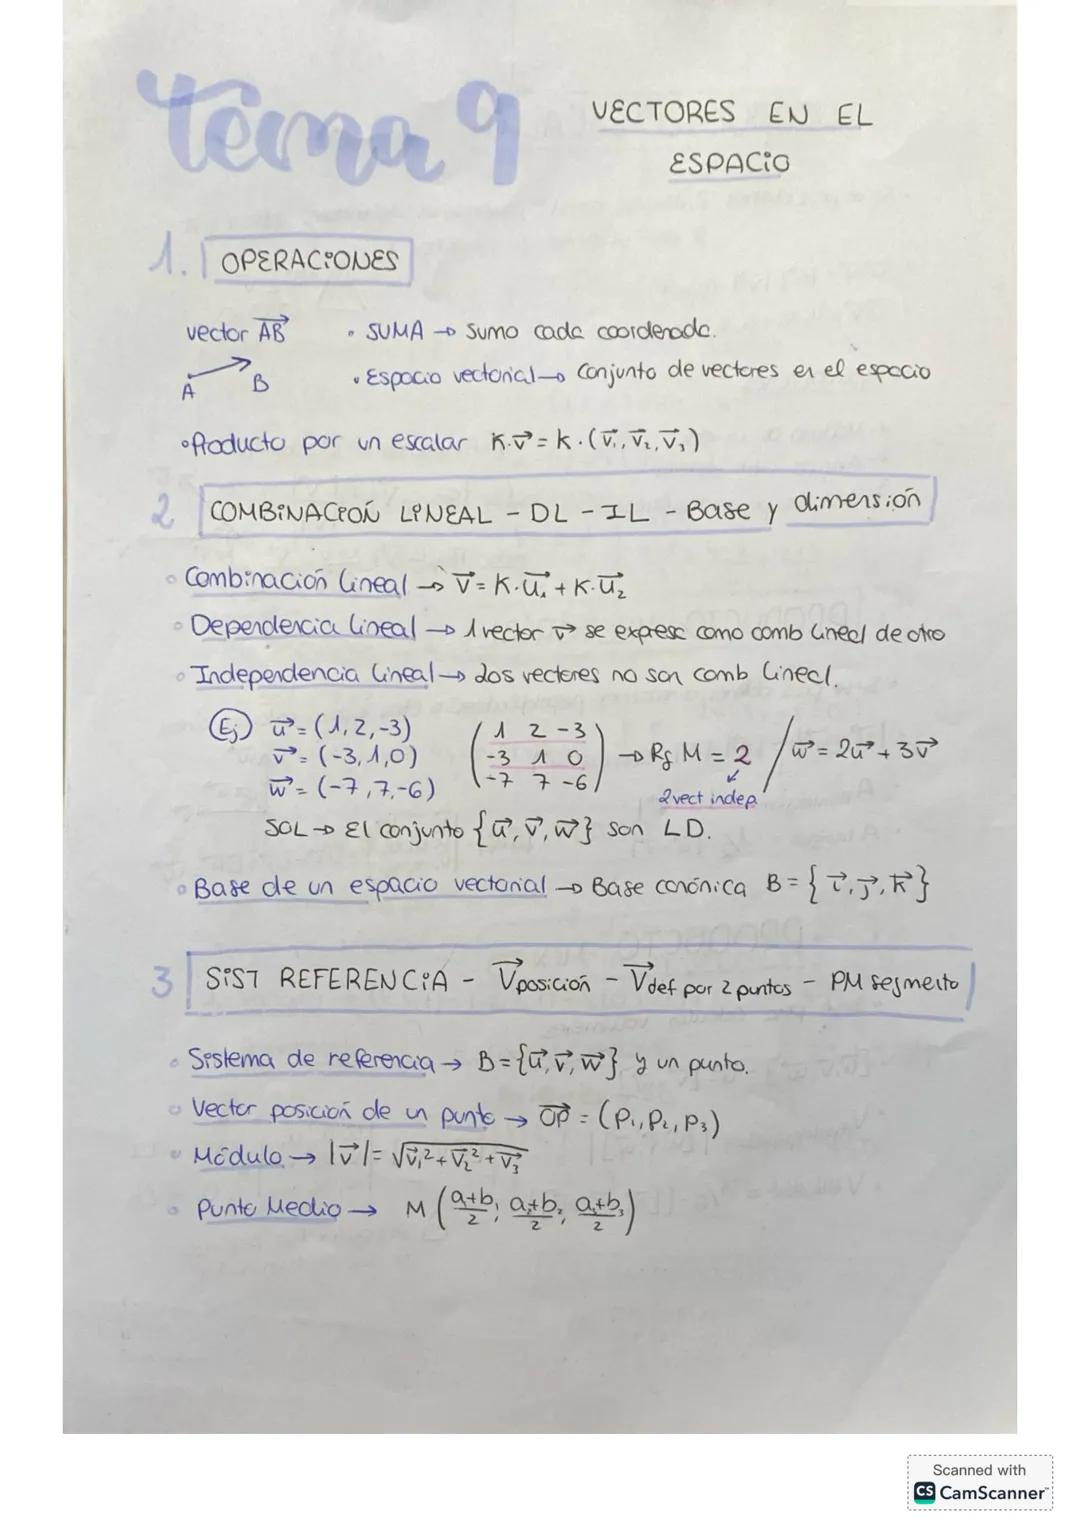 Tema 9
VECTORES EN EL
ESPACIO
1. OPERACIONES
vector AB⃗
A B
• SUMA → Sumo cada coordenada.
• Espacio vectorial → Conjunto de vectores en el espacio
• Producto por un escalar K·v⃗ = k·(v⃗₁, v⃗₂, v⃗₃)
2 COMBINACIÓN LINEAL - DL - IL - Base y dimensión
• Combinación lineal → v⃗ = K·u⃗₁ + K·u⃗₂
• Dependencia lineal → 1 vector v⃗ se expresa como comb lineal de otro
• Independencia lineal → dos vectores no son comb lineal.
Ej u⃗ = (1, 2, -3)
v⃗ = (-3, 1, 0)
w⃗ = (-7, 7, -6)
1 2 -3
-3 1 0
-7 7 -6
→ Rg M = 2 / w⃗ = 2u⃗ + 3v⃗
2 vect indep.
SOL → El conjunto {u⃗, v⃗, w⃗} son LD.
• Base de un espacio vectorial → Base canónica B = {i⃗, j⃗, k⃗}
3 SIST REFERENCIA - V⃗posición - V⃗def por 2 puntos - PM segmento
• Sistema de referencia → B = {u⃗, v⃗, w⃗} y un punto.
• Vector posición de un punto → OP⃗ = (P₁, P₂, P₃)
• Módulo → |v⃗| = √v⃗₁² + v⃗₂² + v⃗₃
• Punto Medio → M (a+b₁/2, a₂+b₂/2, a₃+b₃/2)
Scanned with
CS CamScanner™